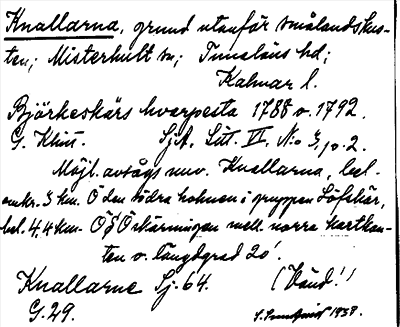 Knallarna, grund utanför smålandskus-
ten; Misterhult sn; Tunaläns hd;
Kalmar l.
Björkeskärs hvarpesta 1788 o. 1792.
G. Klint. SjA. Litt. VI. No 3, p. 2.
Möjl. avsågs nuv. Knallarna, bel.
omkr. 3 km. Ö den södra holmen i gruppen Löfskär,
bel. 4,4 km. ÖSÖ skärningen mell. norra kartkan-
ten o. Längdgrad 20'.
Knallarne Sj. 64. (Vänd!)
G. 29. 1938.